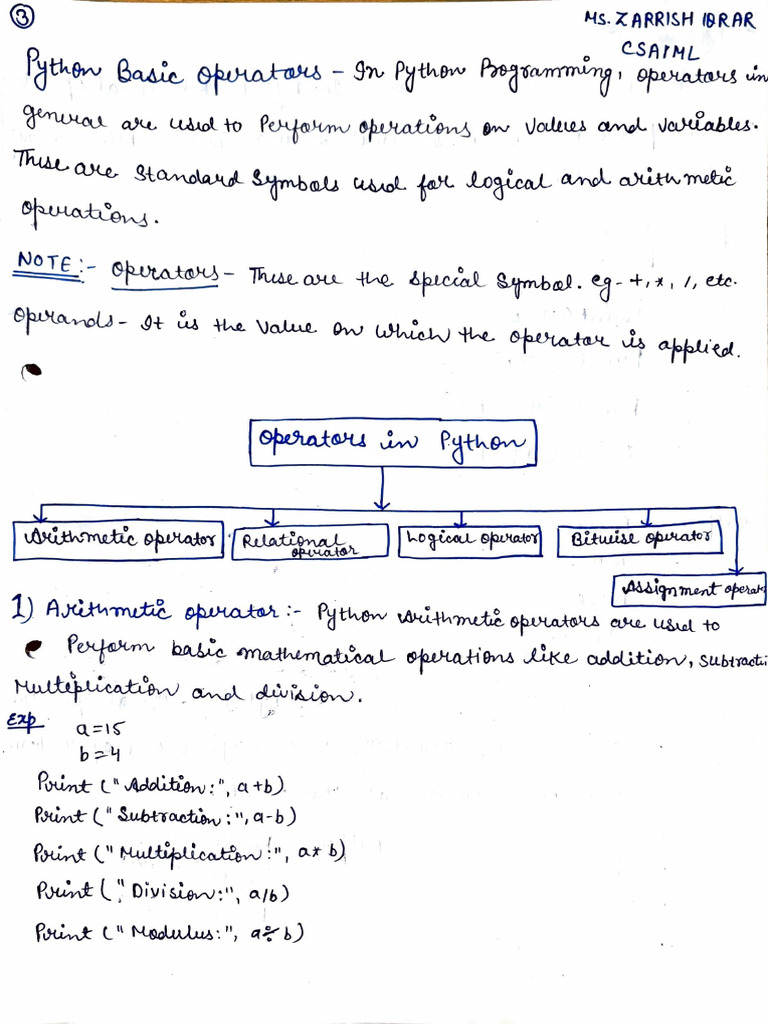 3
MS. ZARRISH IQRAR
CSAIML
Python Basic Operators - In Python Programming, operators in
general are used to Perform operations on values and variables.
These are Standard Symbols used for logical and arithmetic
operations.
NOTE:- Operators - These are the special Symbol. eg - +, *, /, etc.
Operands - It is the value on which the operator is applied.
Operators in Python
Arithmetic operator
Relational operator
Logical operator
Bitwise operator
Assignment operat
1) Arithmetic operator :- Python Arithmetic operators are used to
Perform basic mathematical operations like addition, subtracti
Multiplication and division.
Exp
a=15
b=4
Print ("Addition:", a+b)
Print ("Subtraction:", a-b)
Print ("Multiplication:", a* b)
Print ("Division:", a/b)
Print ("Modulus:", a÷b)